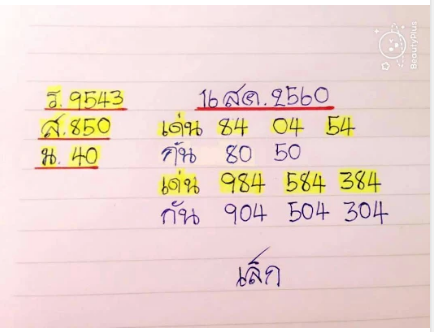 BeautyPlus
ร. 9543 16 ส.ค. 2560
ส. 850 เด่น 84 04 54
น. 40 กัน 80 50
เด่น 984 584 384
กัน 904 504 304
เล็ก